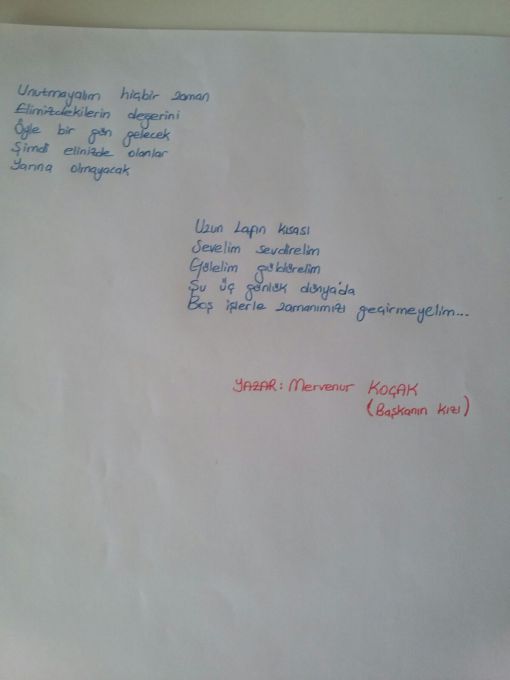 Unutmayalım hiçbir zaman
Elimizdekilerin değerini
Öyle bir gün gelecek
Şimdi elinizde olanlar
Yarına olmayacak
Uzun Lafın kısası
Sevelim sevdirelim
Gülelim güldürelim
Şu üç günlük dünya'da
Boş işlerle zamanımızı geçirmeyelim...
YAZAR: Mervenur KOÇAK
(Başkanın kızı)